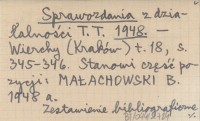 Sprawozdania z dzia-
łalności T.T. 1948. —
Wierchy (Kraków) t. 18, s.
345-346. Stanowi część po-
zycji: MAŁACHOWSKI B.
1948 a.
Zestawienie bibliograficzne
v.